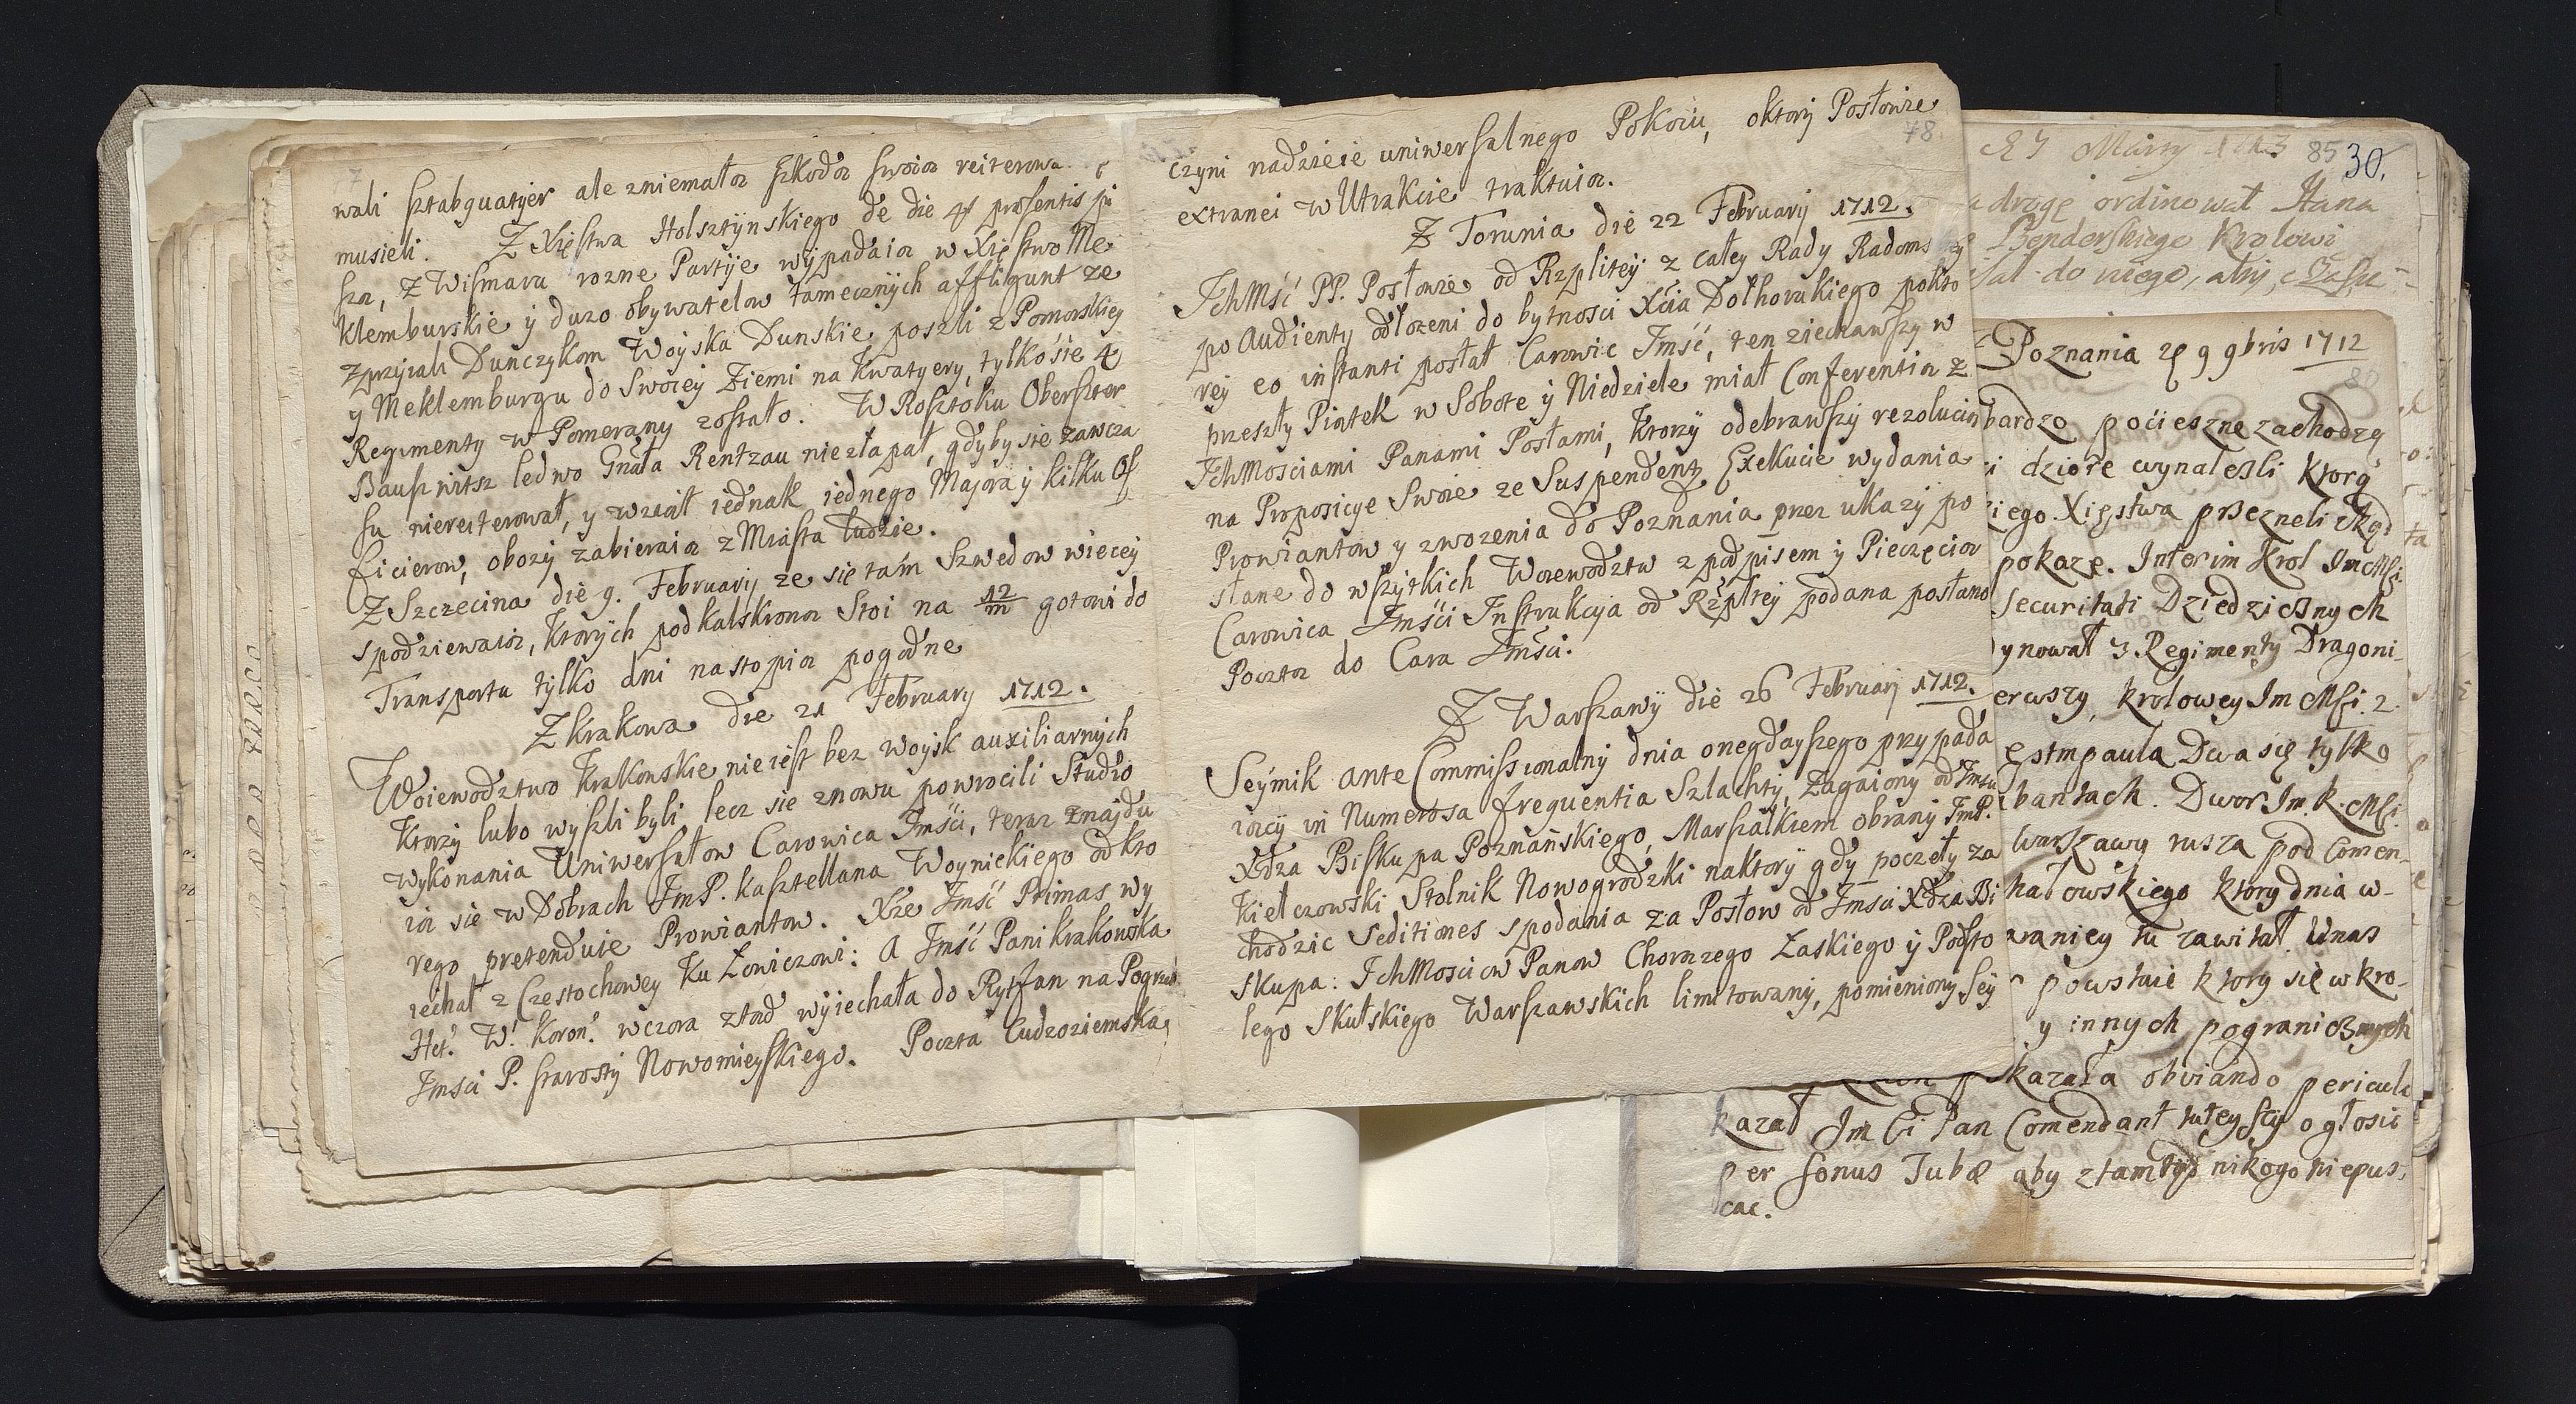 wali sztabquatÿer ale zniemałą szkodą swoią reiterowa
musieli. Z Xięstwa Holsztÿnskiego de die 4 præsentis pi
szą, z Wismaru rozne Partÿe wÿpadaią w Xięstwo Me
klemburskie ÿ duzo obywatelow tamecznÿch affligunt ze
zprzÿiali Duńczykom Woÿska Dunskie poszli z Pomorskieÿ
y Meklemburgu do Swoieÿ Ziemi na Kwatÿery, tylko sie 4
Regimenty w Pomerany zostało. W Rosztoku Oberszter
Bauswitsz ledwo Gnała Rentzau niezłapał, gdyby sie zawcza
su niereiterował, y wzioł iednak iednego Majora ÿ kilku Of
ficierow, obozÿ zabieraią z Miasta ludzie.
Z Szczecina die 9. Februarij ze się tam Szwedow wieceÿ
spodziewaią, Ktorÿch pod Kalskroną Stoi na 12/m gotowi do
Transportu tÿlko dni nastopią pogodne
Z Krakowa die 21 February 1712.
Woiewodztwo Krakowskie nie iest bez woÿsk auxiliarnÿch
Ktorzÿ lubo wyszli byli, lecz sie znowu powrocili Studio
wÿkonania Uniwersałow Carowica Jmści, teraz znajdu
ią sie w Dobrach JmP. Kasztellana Woynickiego od kto
rego pretenduie Prowiantow. Xże Jmść Primas wy
iechał z Czestochowey Ku Łowiczowi: A Jmść Pani Krakowska
Het. W. Koron. wczora ztąd wÿiechała do Rytfan na Pogrzeb
Jmsci P. starosty Nowomieÿskiego. Poczta Cudzoziemska
78
czyni nadzieie uniwersalnego Pokoiu, o ktorÿ Posłowie
extranei w Utrakcie traktuią.
Z Torunia die 22 Februarij 1712.
JchMść PP. Posłowie od Rzpliteÿ z całey Rady Radoms
po Audienty odłozeni do bytności Xcia Dołhorukiego pokto
reÿ eo instanti posłał Carowic Jmść, ten ziechawszy w
przeszły Piątek w Sobote ÿ Niedziele miał Conferentią z
JchMosciami Panami Posłami, Ktorzÿ odebrawszÿ rezolucią
na Proposicye Swoie ze Suspendent Exekucie wydania
Prowiantow y zwozenia do Poznania przez ukazÿ po
słane do wszÿtkich Woiewodztw z podpisem ÿ Pieczęcią
Carowica Jmści Jnstrukcÿa od Rzpltey podana posłano
Pocztą do Cara Jmści.
Z Warszawÿ die 26 Februarj 1712.
Seÿmik ante Commissionalnÿ dnia onegdayszego przypada
iącÿ in Numerosa frequentia Szlachtÿ, Zagaiony od Jmści
Xdza Biskupa Poznańskiego, Marszałkiem obranÿ JmP.
Kiełczowski Stolnik Nowogrodzki na ktorÿ gdÿ poczęłÿ za
chodzic Seditiones spodania za Posłow od Jmsci Xdza Bi
skupa: JchMosciow Panow Chorazego Łaskiego ÿ Podsto
lego Skulskiego Warszawskich limitowanÿ, pomieniony Seÿ
85 30.
drogę ordinował Hana
Benderskiego Krolowi
sał do niego, aby,
Poznania 29 9bris 1712
bardzo pocieszne zachodzą
dziore wynalesli ktorą
iego Xięstwa przezneli skąd
pokaze. Interim Krol ImMsi
securitati Dziedzicznych
ynował 3 Regimenty Dragoni-
erwszy, krolowey Im Msi. 2.
estmpaula Dwa się tylko
bantach. Dwor Im. K. Msi.
warszawy rusza pod Comen-
hałowskiego ktory dnia w-
raniey tu zawitał. Unas
powstaie ktory się w kro-
y innych pogranicznych
kazała obviando pericula
kazał Jm Ci Pan Comendant tuteyszy ogłosić
per sonus Tubæ aby ztamtąd nikogo niepus,
cac.